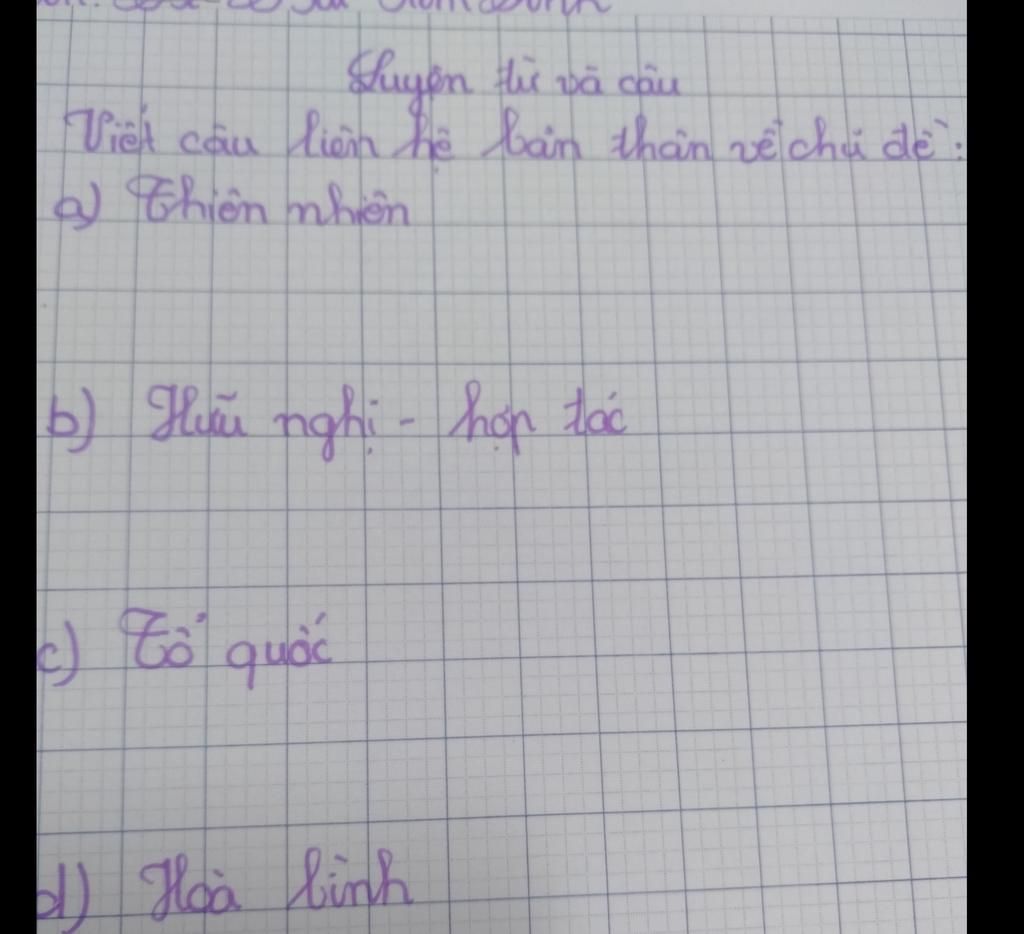 Luyện từ và câu
Viết câu liên hệ bản thân về chủ đề:
a) Thiên nhiên
b) Hữu nghị - hợp tác
c) Tổ quốc
d) Hoà bình